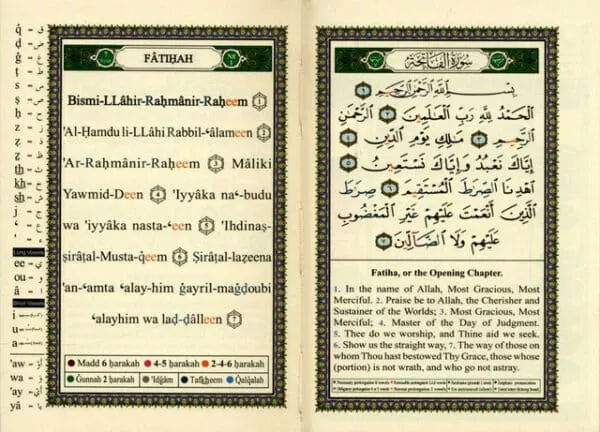 FÂTIḤAH
Bismi-LLâhir-Raḥmânir-Raḥeem ①
'Al-Ḥamdu li-LLâhi Rabbil-ʻâlameen ②
'Ar-Raḥmânir-Raḥeem ③ Mâliki
Yawmid-Deen ④ 'Iyyâka naʻ-budu
wa 'iyyâka nasta-ʻeen ⑤ 'Ihdinaṣ-
ṣirâṭal-Musta-q̇eem ⑥ Ṣirâṭal-lazeena
'an-ʻamta ʻalay-him ġayril-maġdoubi
ʻalayhim wa laḍ-ḍâlleen ⑦
Madd 6 ḥarakah 4-5 ḥarakah 2-4-6 ḥarakah
Ġunnah 2 ḥarakah 'Idġâm Tafkheem Qalqalah
سُورَةُ الفَاتِحَةِ
بِسْمِ اللَّهِ الرَّحْمَٰنِ الرَّحِيمِ ١
الْحَمْدُ لِلَّهِ رَبِّ الْعَالَمِينَ ٢ الرَّحْمَٰنِ
الرَّحِيمِ ٣ مَالِكِ يَوْمِ الدِّينِ ٤
إِيَّاكَ نَعْبُدُ وَإِيَّاكَ نَسْتَعِينُ ٥
اهْدِنَا الصِّرَاطَ الْمُسْتَقِيمَ ٦ صِرَاطَ
الَّذِينَ أَنْعَمْتَ عَلَيْهِمْ غَيْرِ الْمَغْضُوبِ
عَلَيْهِمْ وَلَا الضَّالِّينَ ٧
Fatiha, or the Opening Chapter.
1. In the name of Allah, Most Gracious, Most
Merciful. 2. Praise be to Allah, the Cherisher and
Sustainer of the Worlds; 3. Most Gracious, Most
Merciful; 4. Master of the Day of Judgment.
5. Thee do we worship, and Thine aid we seek.
6. Show us the straight way, 7. The way of those on
whom Thou hast bestowed Thy Grace, those whose
(portion) is not wrath, and who go not astray.